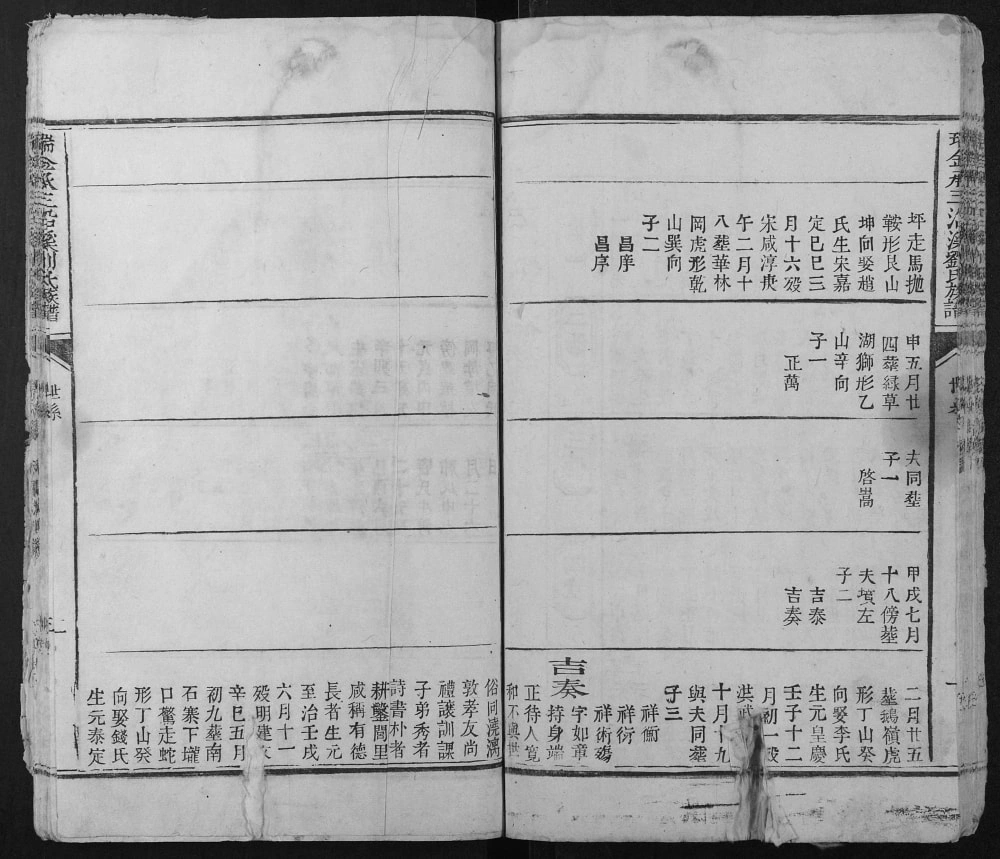 坪走馬拋
鞍形艮山
坤向娶趙
氏生宋嘉
定巳巳三
月十六歿
宋咸淳庚
午二月十
八塟華林
岡虎形乾
山巽向
子二
昌序
昌序
申五月廿
四塟緑草
湖獅形乙
山辛向
子一
正萬
夫同塟
子一
啓嵩
甲戌七月
十八傍塟
夫墳左
子二
吉泰
吉奏
二月廿五
塟鵝嶺虎
形丁山癸
向娶李氏
生元皇慶
壬子十二
月初一歿
洪武
十月十九
與夫同塟
子三
祥衡
祥衍
祥術殤
吉奏
字如章
持身端
正待人寬
和不與世
俗同澆漓
敦孝友尚
禮讓訓課
子弟秀者
詩書朴者
耕鑿閭里
咸稱有德
長者生元
至治壬戌
六月十一
歿明建文
辛巳五月
初九塟南
石寨下瓏
口驚走蛇
形丁山癸
向娶錢氏
生元泰定
世系